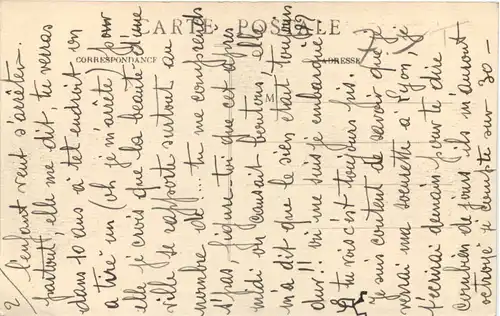 CARTE POSTALE
CORRESPONDANCE
ADRESSE
M
2/ l'enfant veut s'arrêter
partout, elle me dit, tu verras
dans 10 ans à tel endroit on
a tiré un (oh je m'arrête) pour
elle je crois que la beauté d'une
ville se rapporte surtout au
nombre de ... tu me comprends
n'pas figure-toi que cet après
midi on causait boutons, elle
m'a dit que le sien était toujours
dur!! où me suis-je embarqué!
tu vois c'est toujours pis.
Je suis content de savoir que j
verrai ma sœurette à Lyon, je
t'écrirai demain pour te dire
combien de jours ils m'auront
octroyé je compte sur 30 -